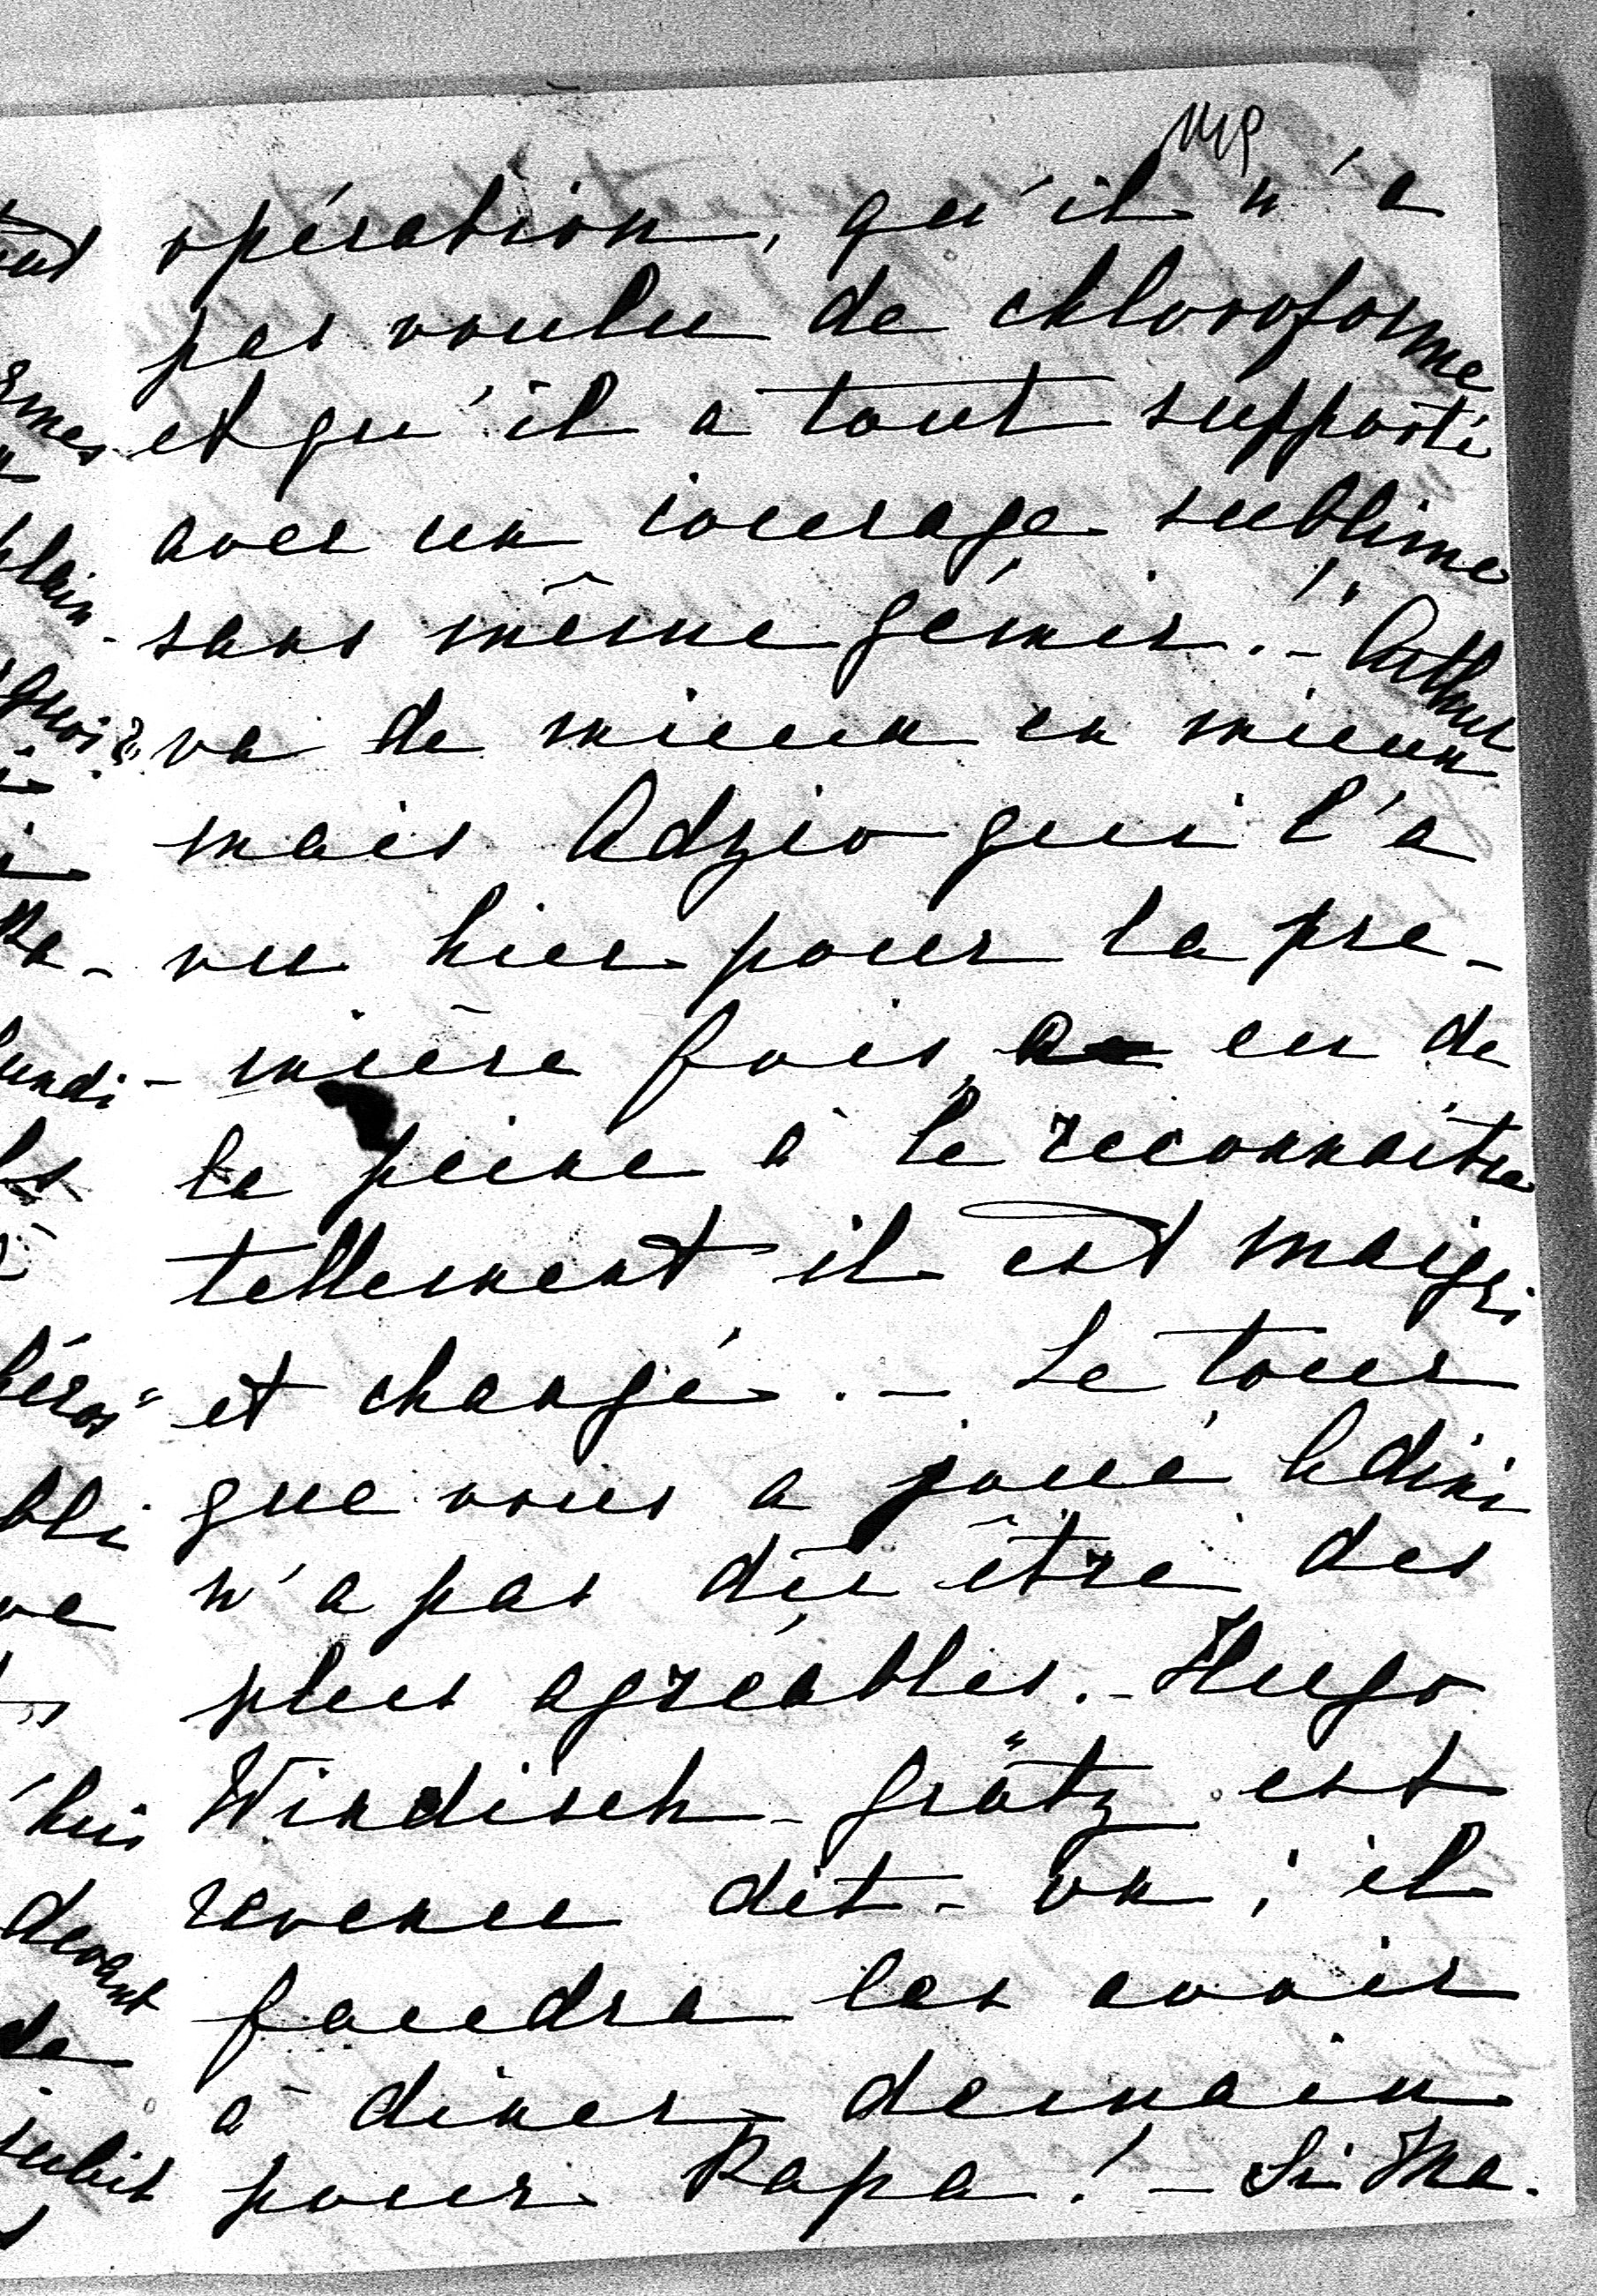 opération, qu'il n'a
pas voulu de chloroforme
et qu'il a tout supporté
avec un courage sublime
sans même gémir.!" – Arthur
va de mieux en mieux
mais Adzio qui l'a
vu hier pour la pre-
mière fois, a eu de
la peine à le reconnaître
tellement il est maigri
et changé. – Le tour
que vous a joué Edini
n'a pas dû être des
plus agréables. – Hugo
Windisch-Grätz est
revenu dit-on ; il
faudra les avoir
à diner demain
pour Papa ! – Si Ma.